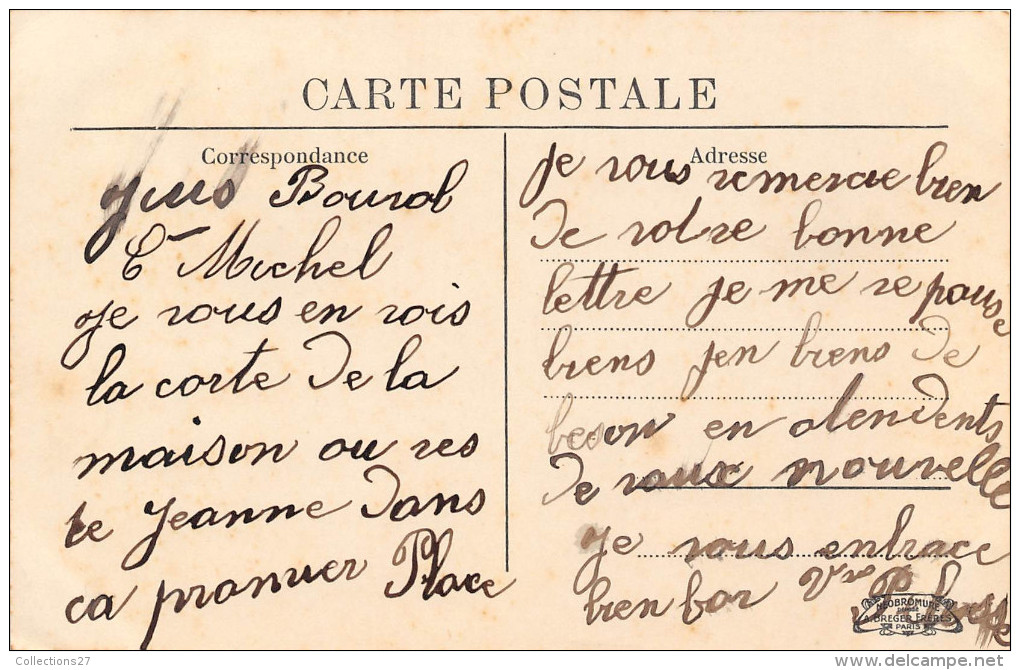 CARTE POSTALE
Correspondance
Bourol
Michel
je vous en vois
la corte de la
maison ou res
te Jeanne dans
ca pranuer Place
Adresse
je vous remercie bien
de votre bonne
lettre je me repouse
biens jen biens de
beson en atendents
de vaux nouvelle
je vous enbrace
bien bor
NEOBROMURE
A. BREGER FRERES
PARIS
Collections27
www.delcampe.net